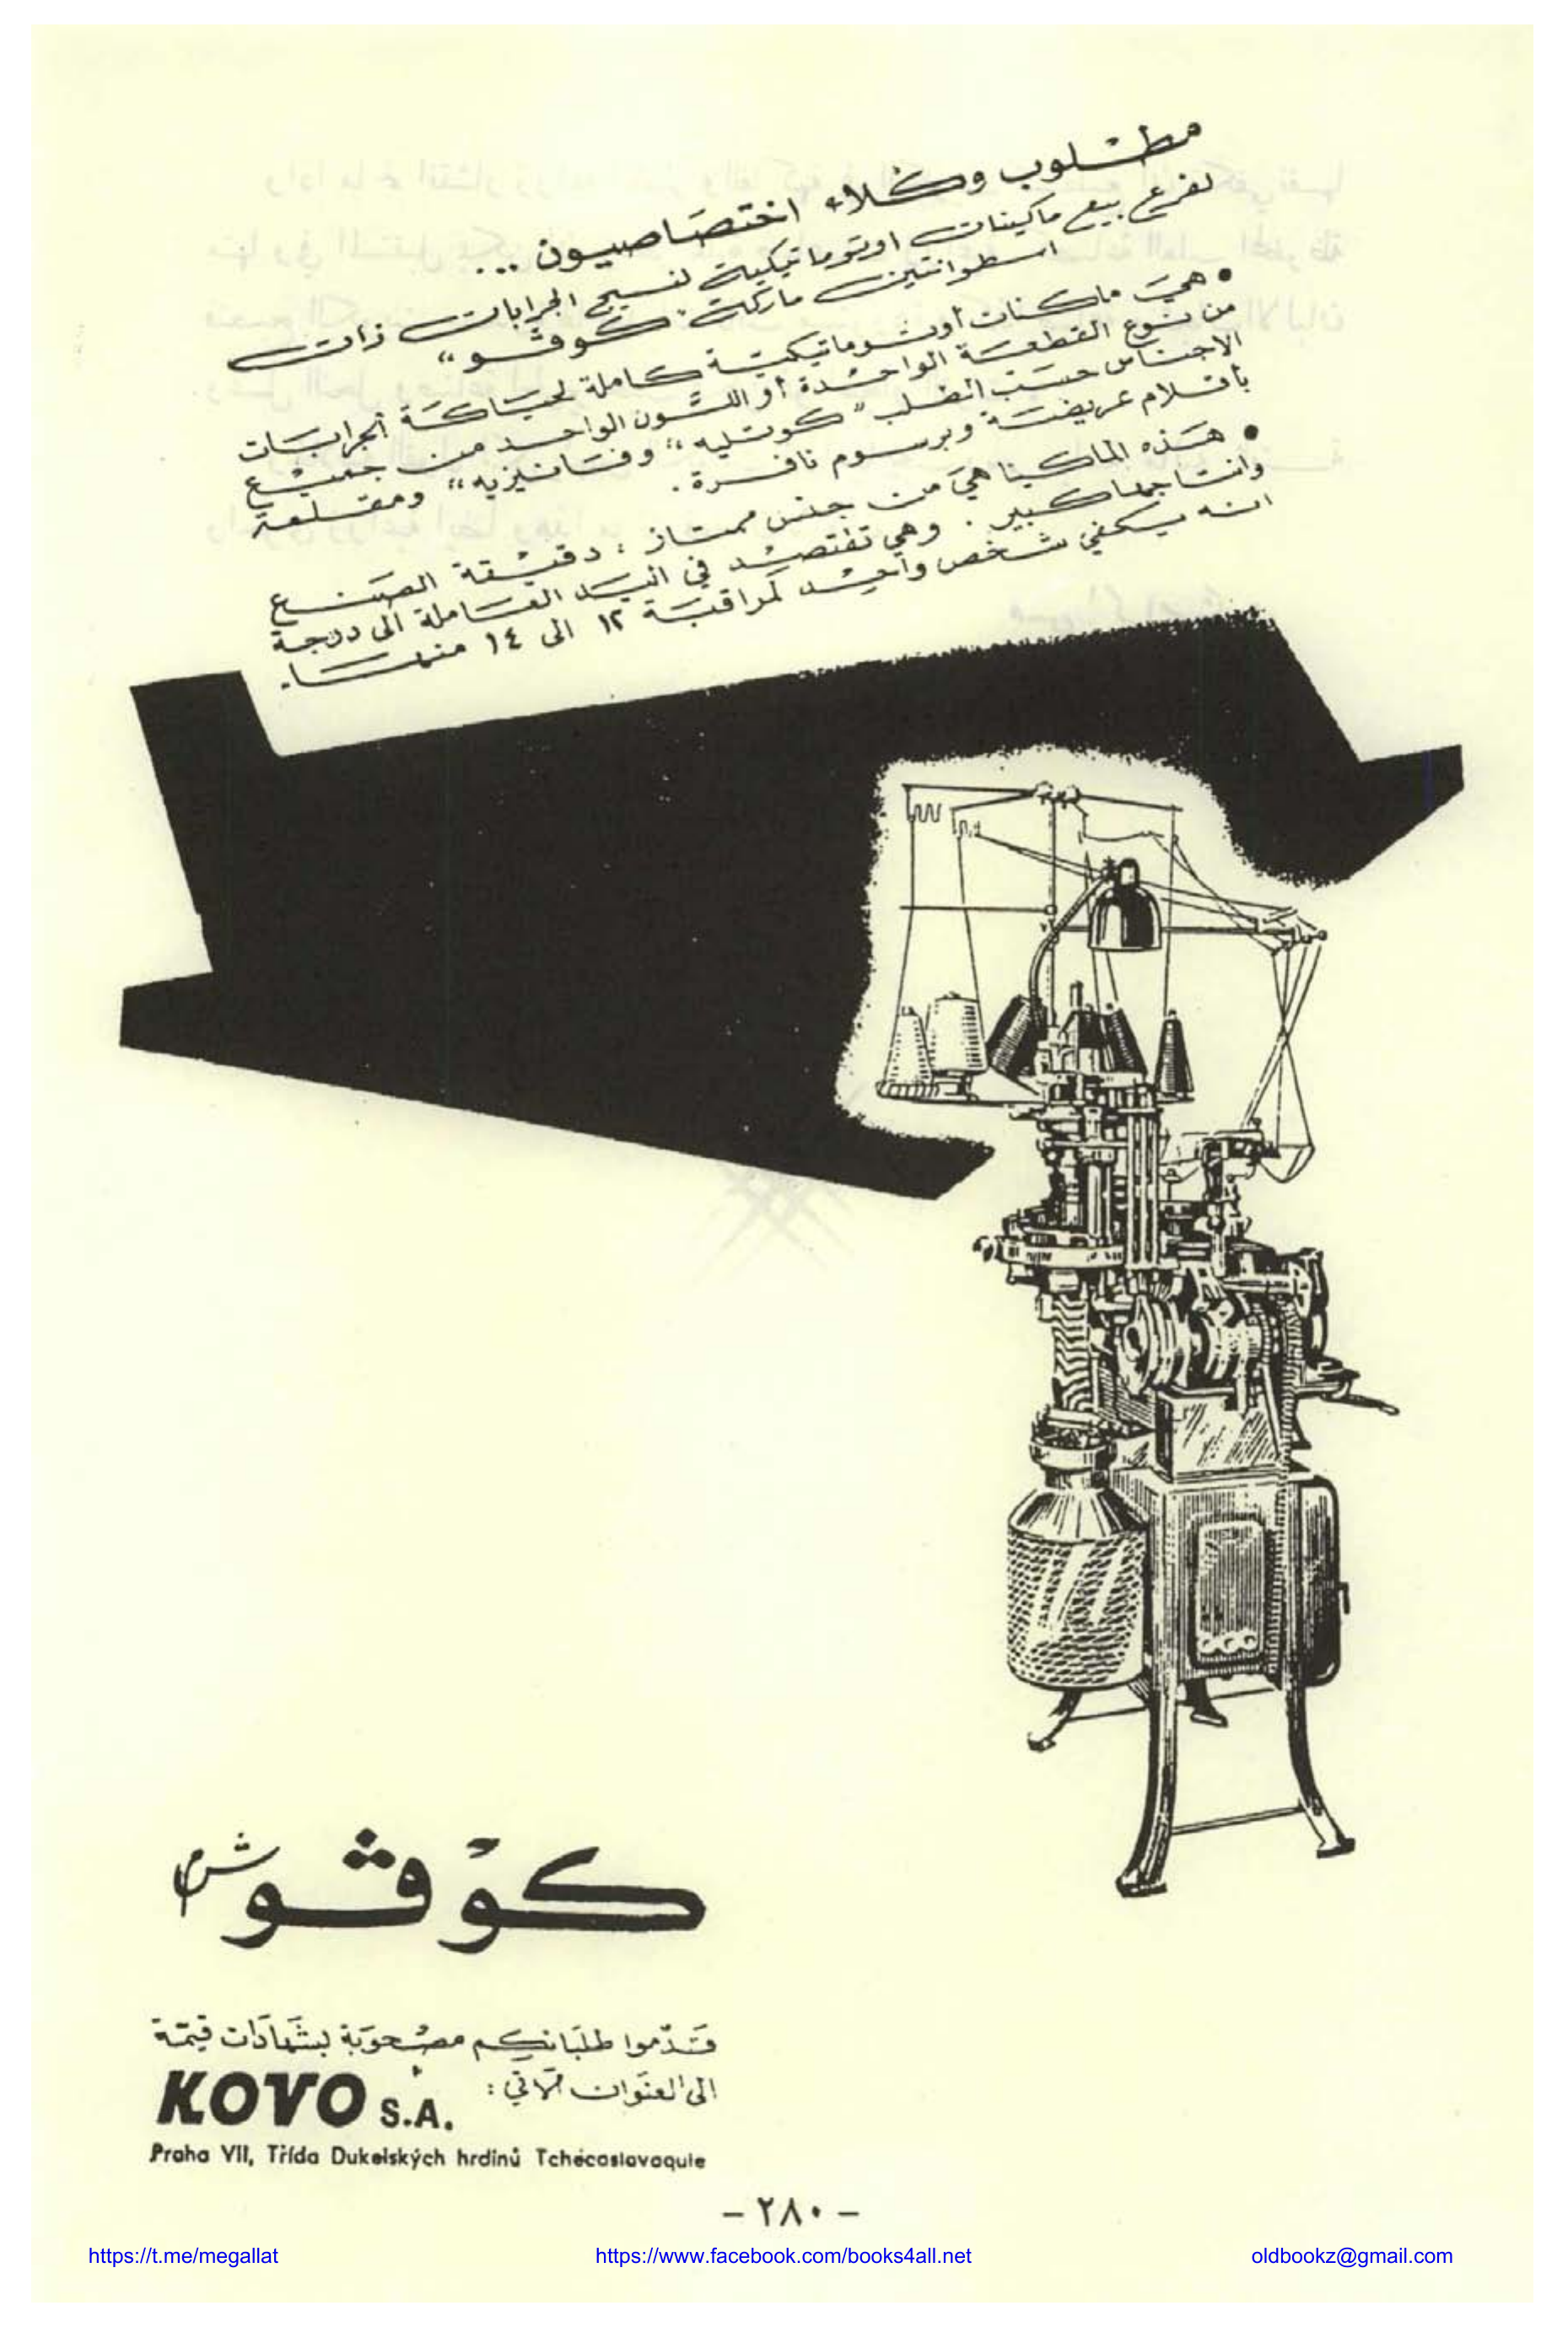 مطلوب وكلاء اختصاصيون ...
لفرع بيع ماكينات اوتوماتيكية لنسيج الجرابات ذات
اسطوانتين ماركة "كوڤو"
• هي ماكنات أوتوماتيكية كاملة لحياكة الجرابات
من نوع القطعة الواحدة أو اللون الواحد من جميع
الاجناس حسب الطلب "كوتليه" وفتانيزيه" ومقلمة
بأقلام عريضة وبرسوم نافرة.
• هذه الماكينا هي من جنس ممتاز : دقيقة الصنع
وانتاجها كبير . وهي تقتصد في اليد العاملة الى درجة
انه يكفي شخص واحد لمراقبة ١٢ الى ١٤ منها.
كوڤو
قدّموا طلباتكم مصحوبة بشهادات قيمة
الى العنوان الآتي :
KOVO S.A.
Praha VII, Třída Dukelských hrdinů Tchécoslovaquie
- ٢٨٠ -
https://t.me/megallat
https://www.facebook.com/books4all.net
oldbookz@gmail.com